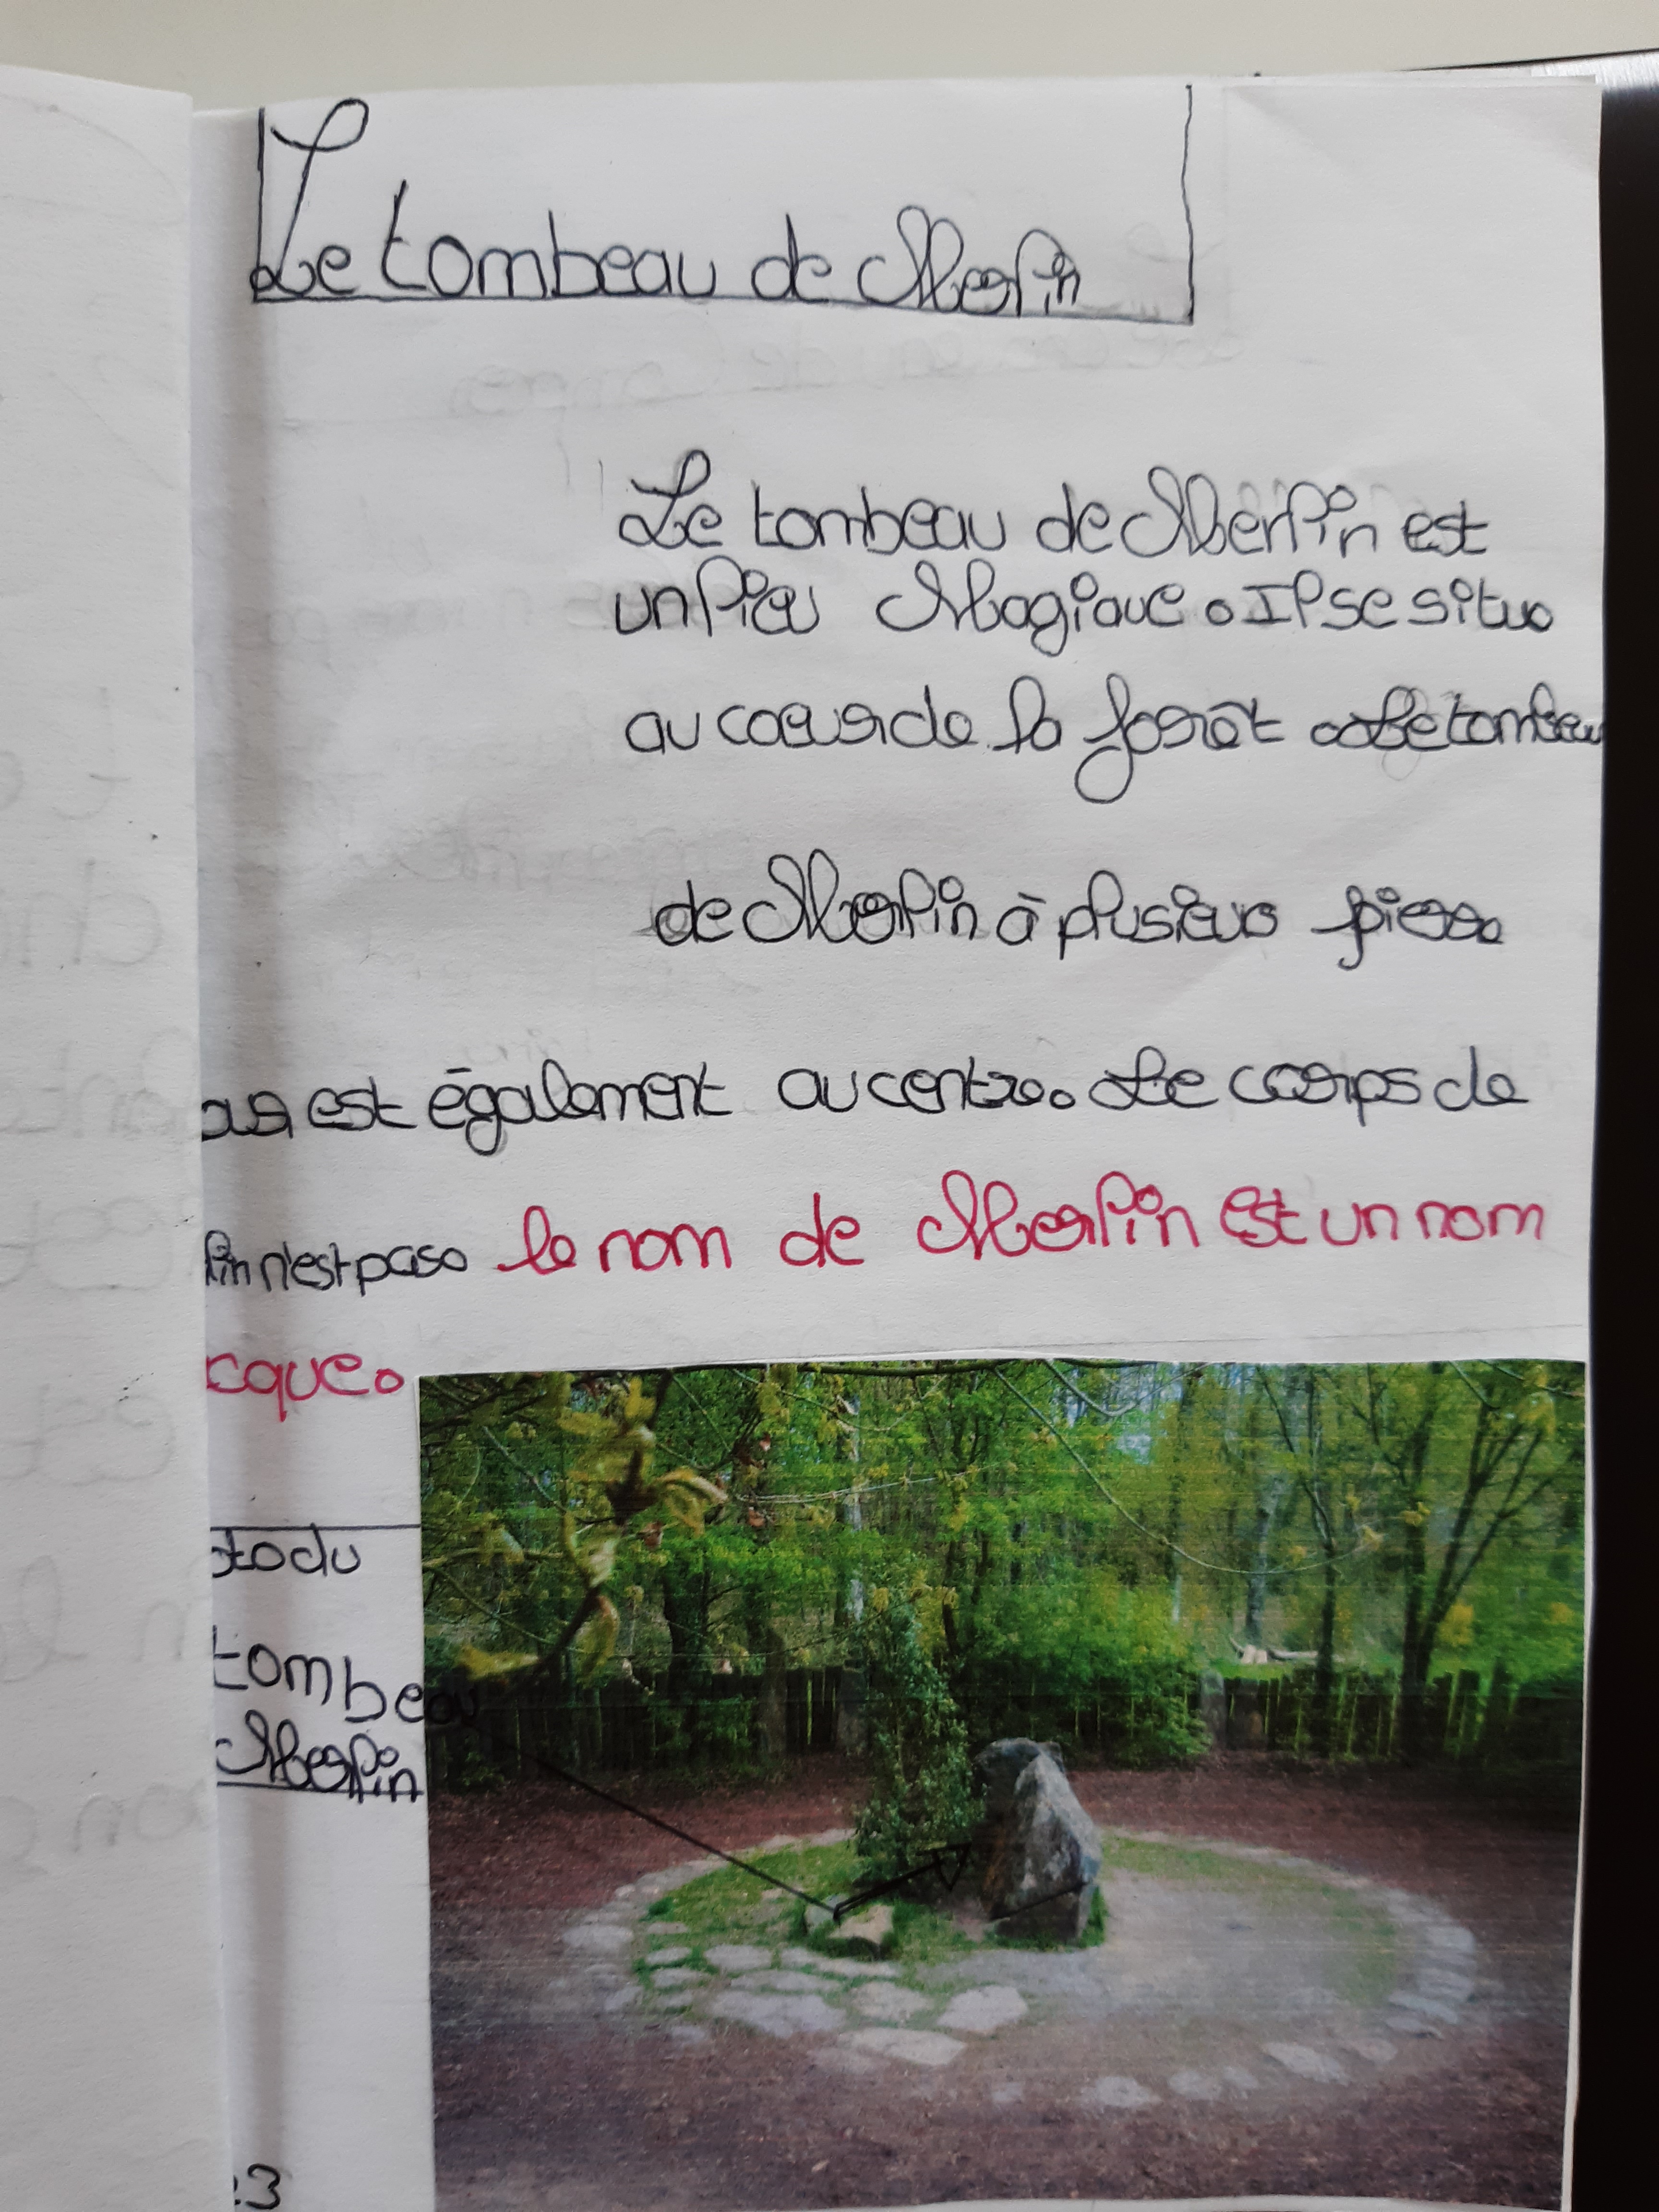 Le tombeau de Merlin
Le tombeau de Merlin est
un lieu Magique. Il se situe
au cœur de la forêt. Le tombeau
de Merlin à plusieurs pierre
est également au centre. Le corps de
lin n'est pas. le nom de Merlin est un nom
cque.
oto du
tombeau
Merlin
3